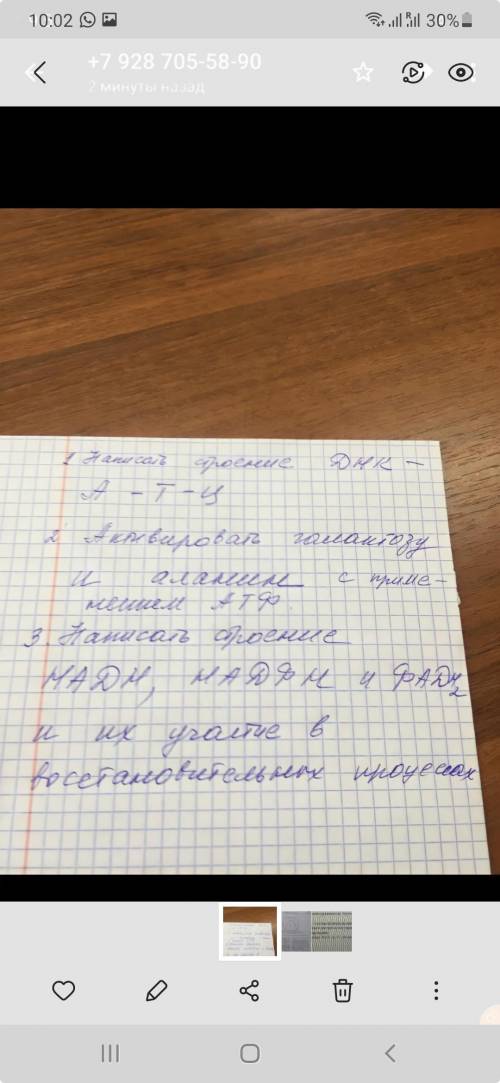 10:02 30%
+7 928 705-58-90
2 минуты назад
1 Написать строение ДНК –
А – Т – Ц
2 Активировать галактозу
и аланин с приме-
нением АТФ.
3. Написать строение
НАДН, НАДФН и ФАДН2
и их участие в
восстановительных процессах